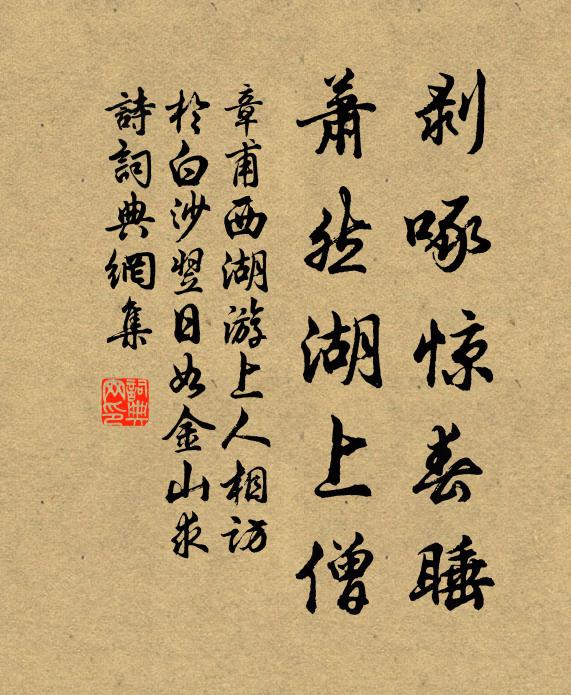 剥啄惊春睡
萧然湖上僧
章甫西湖游上人相访
於白沙翌日如金山求
詩詞典網集
詞典網印